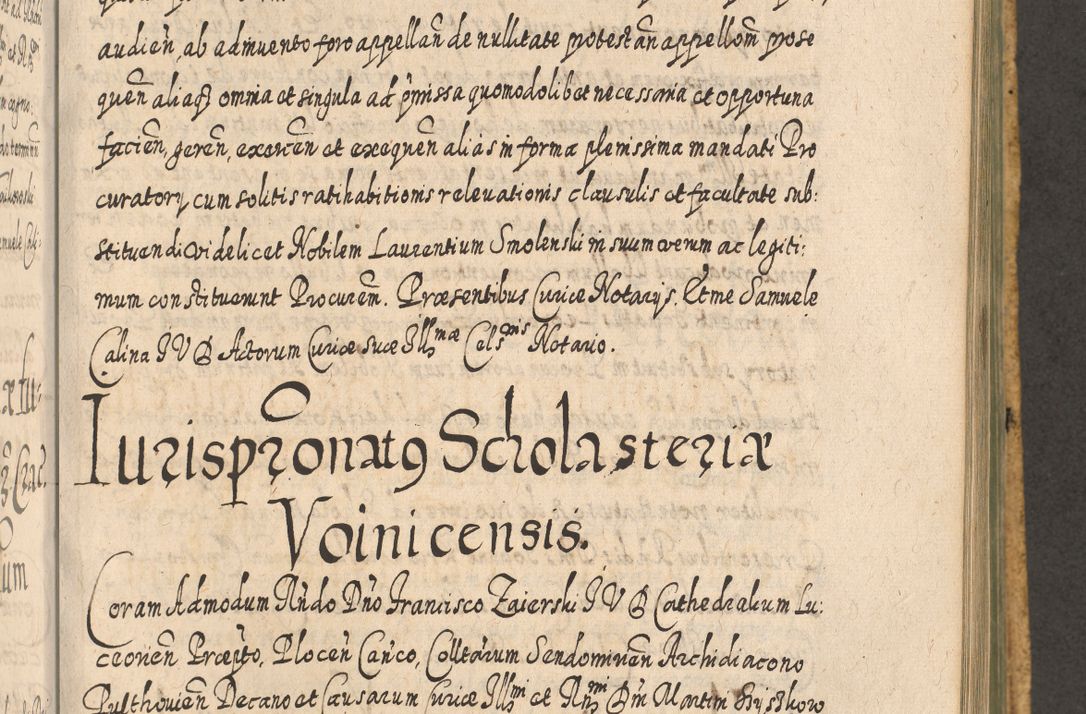 audien̄, ab adinuento foro appellan̄ de nullitate protestan̄ appellom̄ prose
quen̄ aliaq̃ omnia et singula ad p̄missa quomodolibet necessaria et opportuna
facien̄, geren̄, exercen̄ et exequen̄ alias in forma plenissima mandati Pro
curatory cum solitis ratihabitionis releuationis clausulis et facultate sub:
stituendi videlicet Nobilem Laurentium Smolenski in suum verum ac legiti:
mum constituerunt Procurem̄. Præsentibus Curiæ Notarijs. Et me Samuele
Calina I V D Actorum Curiæ suæ Illmæ Celsnis Notario.
Iurispr̄onatꝯ Scholasteriæ
Voinicensis.
Coram Admodum Rn̄do Dn̄o Francisco Zaierski I V D Cathedralium Lu:
ceorien̄ Præp̄to, Plocen̄ Can̄co, Colltarum Sendomirien̄ Archidiacono
Pulthouien̄ Decano et Causarum Curiæ Illmi et Rn̄mi Dn̄i Martini Szyszkow